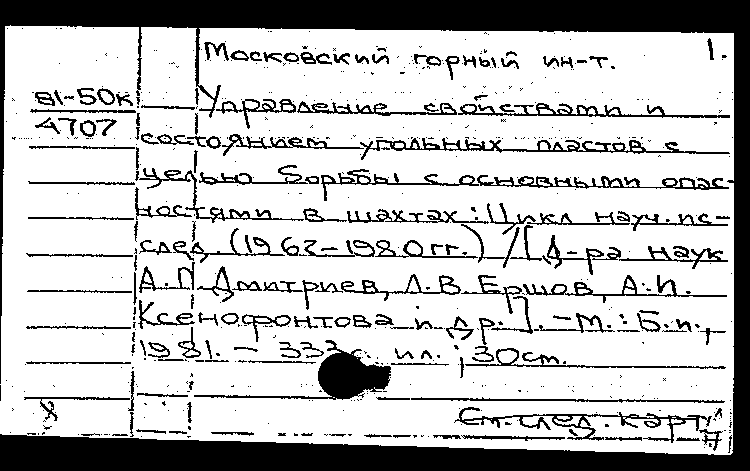 Московский горный ин-т. 1.
81-50к Управление свойствами и
4707 состоянием угольных пластов с
целью борьбы с основными опас-
ностями в шахтах: Цикл науч. ис-
след. (1962-1980гг.) / [Д-ра наук
А.П. Дмитриев, Л.В. Ершов, А.И.
Ксенофонтова и др.]. - М.: Б.и.,
1981. - 333 с. ил.; 30см.
См. след. карт